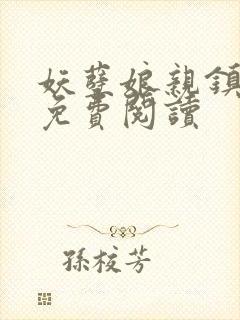 妖孽娘親鎮
免費閱讀
孫校芳